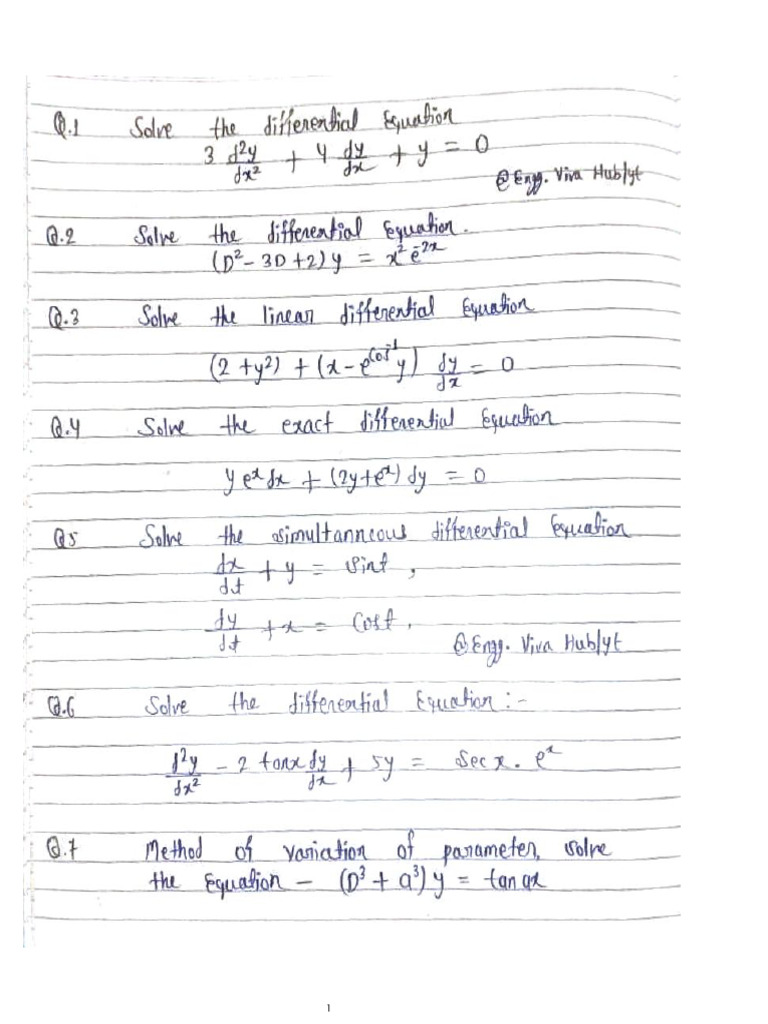 Q.1 Solve the differential Equation
3 d²y/dx² + 4 dy/dx + y = 0
@Engg. Viva Hub/yt
Q.2 Solve the differential Equation.
(D² - 3D + 2) y = x² e⁻²ˣ
Q.3 Solve the linear differential Equation
(2 + y²) + (x - e^cos⁻¹y) dy/dx = 0
Q.4 Solve the exact differential Equation
y eˣ dx + (2y + eˣ) dy = 0
Q5 Solve the simultanneous differential Equation
dx/dt + y = sint,
dy/dt + x = Cost,
@Engg. Viva Hub/yt
Q.6 Solve the differential Equation :-
d²y/dx² - 2 tanx dy/dx + 5y = Sec x. eˣ
Q.7 Method of variation of parameter, solve
the Equation - (D³ + a³) y = tan ax
1